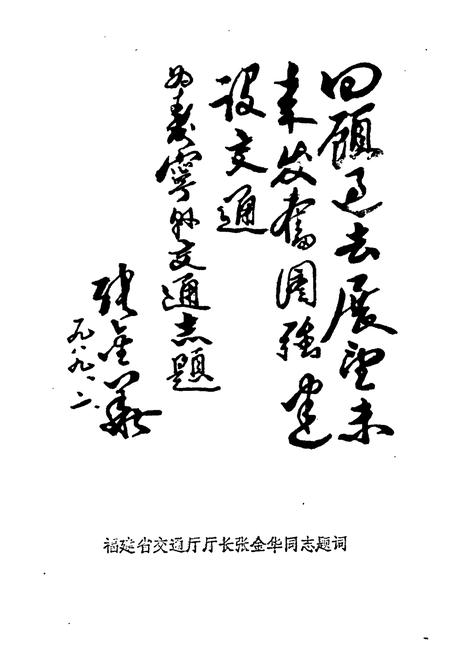 回顾过去展望未
来发奋图强建
设交通
为寿宁县交通志题
张金华
一九八九.八.二
福建省交通厅厅长张金华同志题词